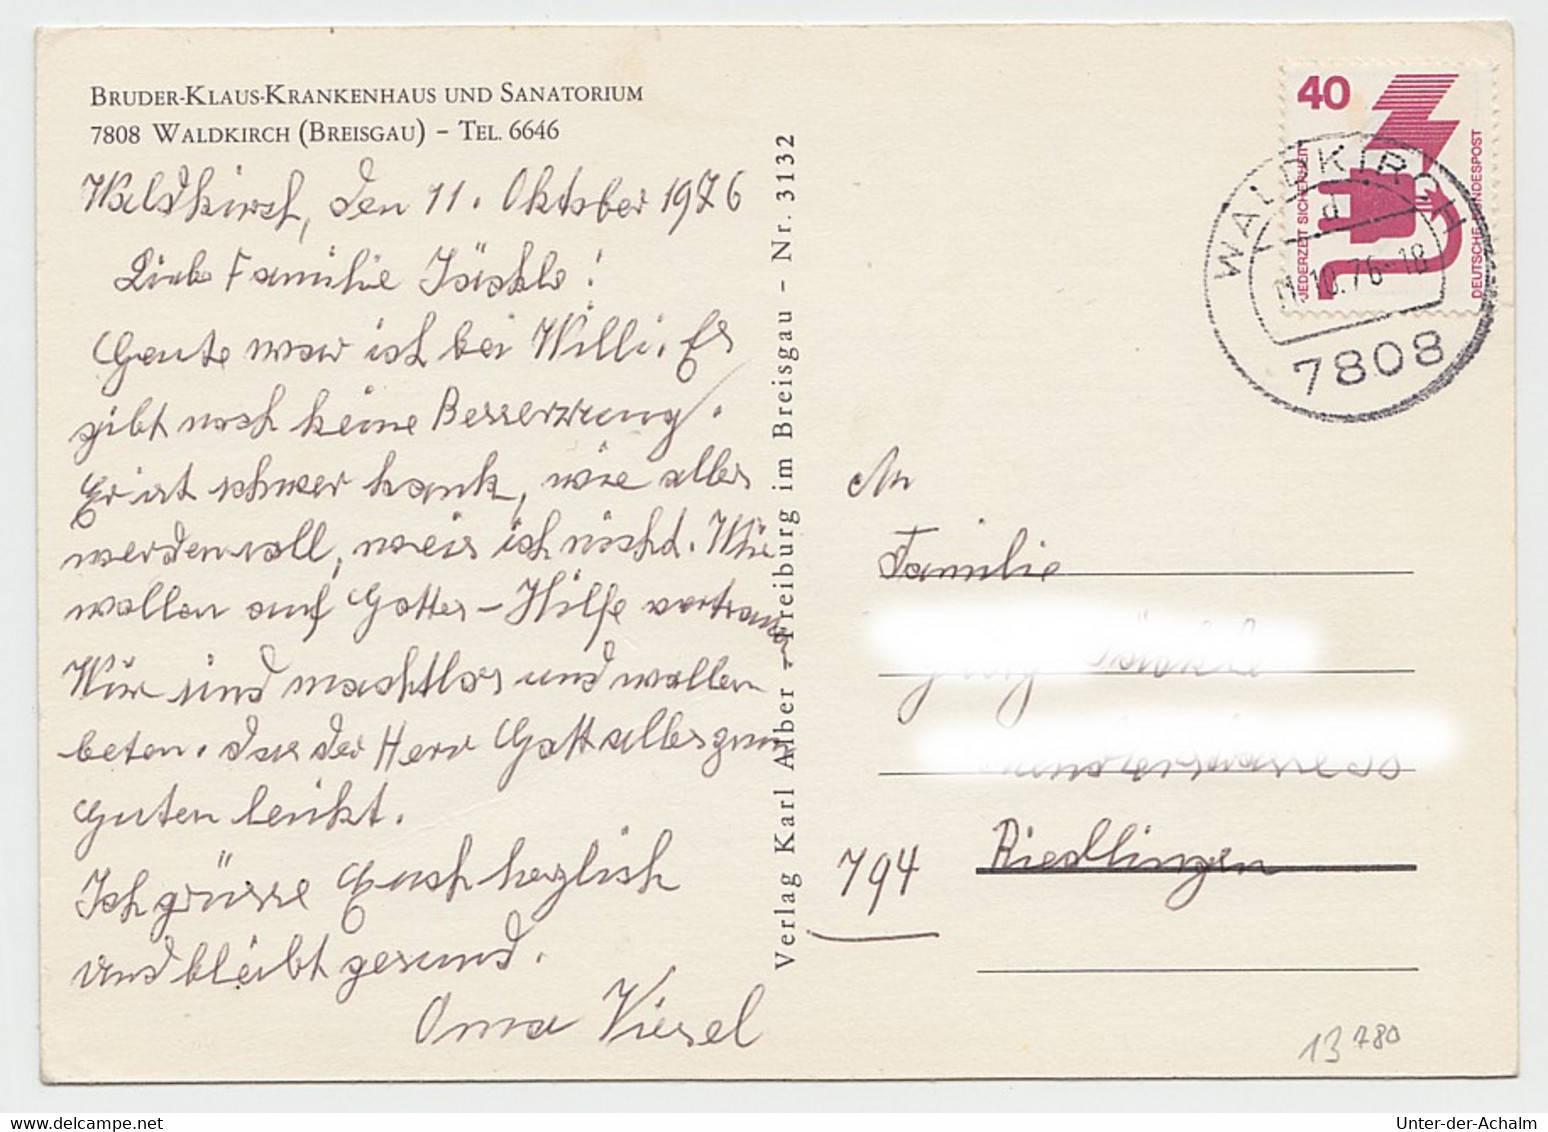 BRUDER-KLAUS-KRANKENHAUS UND SANATORIUM
7808 WALDKIRCH (BREISGAU) – TEL. 6646
Waldkirch, den 11. Oktober 1976
Liebe Familie Jäckle!
Heute war ich bei Willi. Es
gibt noch keine Besserzung.
Er ist schwer krank, wie alles
werden soll, weis ich nicht. Wir
wollen auf Gottes-Hilfe vertrauen
Wir sind machtlos und wollen
beten. das der Herr Gott alles zum
guten lenkt.
Ich grüsse Euch herzlich
und bleibt gesund.
Oma Viesel
Verlag Karl Alber – Freiburg im Breisgau – Nr. 3132
40
JEDERZEIT SICHERHEIT
DEUTSCHE BUNDESPOST
WALDKIRCH
d
11.10.76-18
7808
An
Familie
Georg
794 Riedlingen
13 780
delcampe.net
Unter-der-Achalm